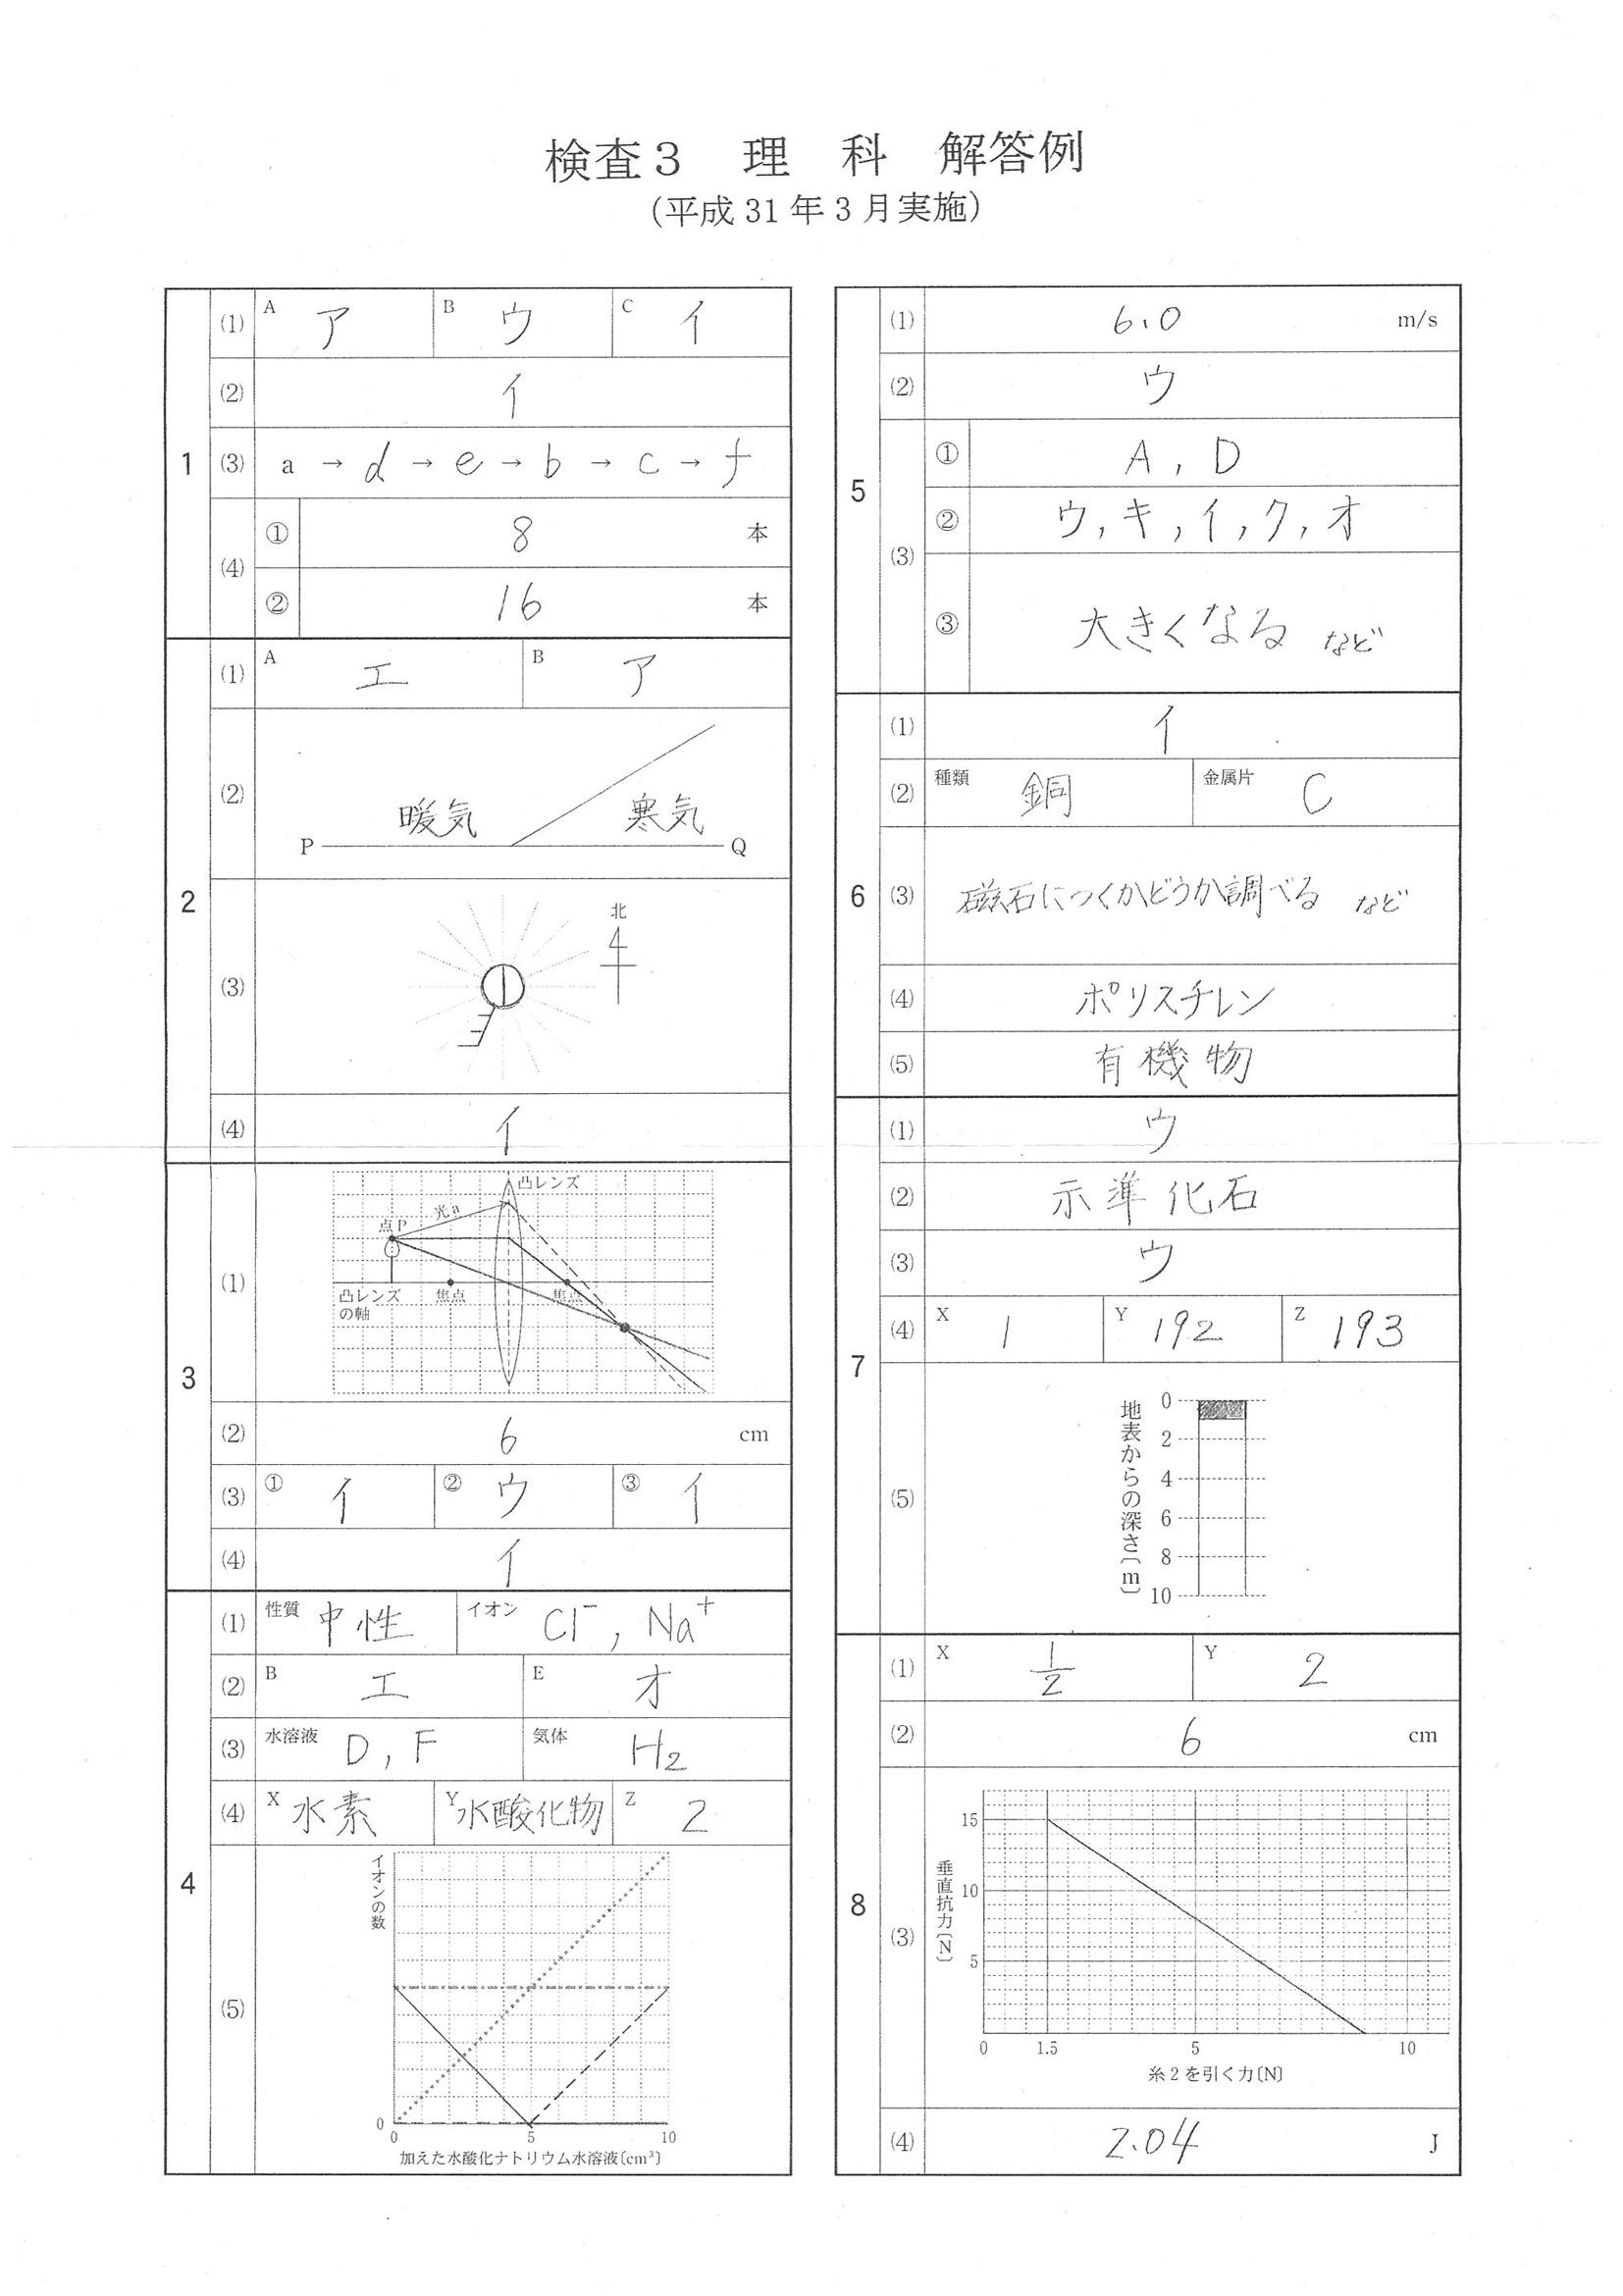 検査3 理 科 解答例
(平成 31 年 3 月実施)
1
(1) A ア B ウ C イ
(2) イ
(3) a → d → e → b → c → f
(4) ① 8 本
② 16 本
2
(1) A エ B ア
(2) 暖気 寒気
P Q
(3) 北
(4) イ
3
(1) 凸レンズ
光a
点P
凸レンズの軸 焦点 焦点
(2) 6 cm
(3) ① イ ② ウ ③ イ
(4) イ
4
(1) 性質 中性 イオン Cl⁻, Na⁺
(2) B エ E オ
(3) 水溶液 D, F 気体 H₂
(4) X 水素 Y 水酸化物 Z 2
(5) イオンの数
0
0 5 10
加えた水酸化ナトリウム水溶液〔cm³〕
5
(1) 6.0 m/s
(2) ウ
(3) ① A, D
② ウ, キ, イ, ク, オ
③ 大きくなる など
6
(1) イ
(2) 種類 銅 金属片 C
(3) 磁石につくかどうか調べる など
(4) ポリスチレン
(5) 有機物
7
(1) ウ
(2) 示準化石
(3) ウ
(4) X 1 Y 192 Z 193
(5) 地表からの深さ〔m〕
0
2
4
6
8
10
8
(1) X 1/2 Y 2
(2) 6 cm
(3) 垂直抗力〔N〕
15
10
5
0 1.5 5 10
糸2を引く力〔N〕
(4) 2.04 J